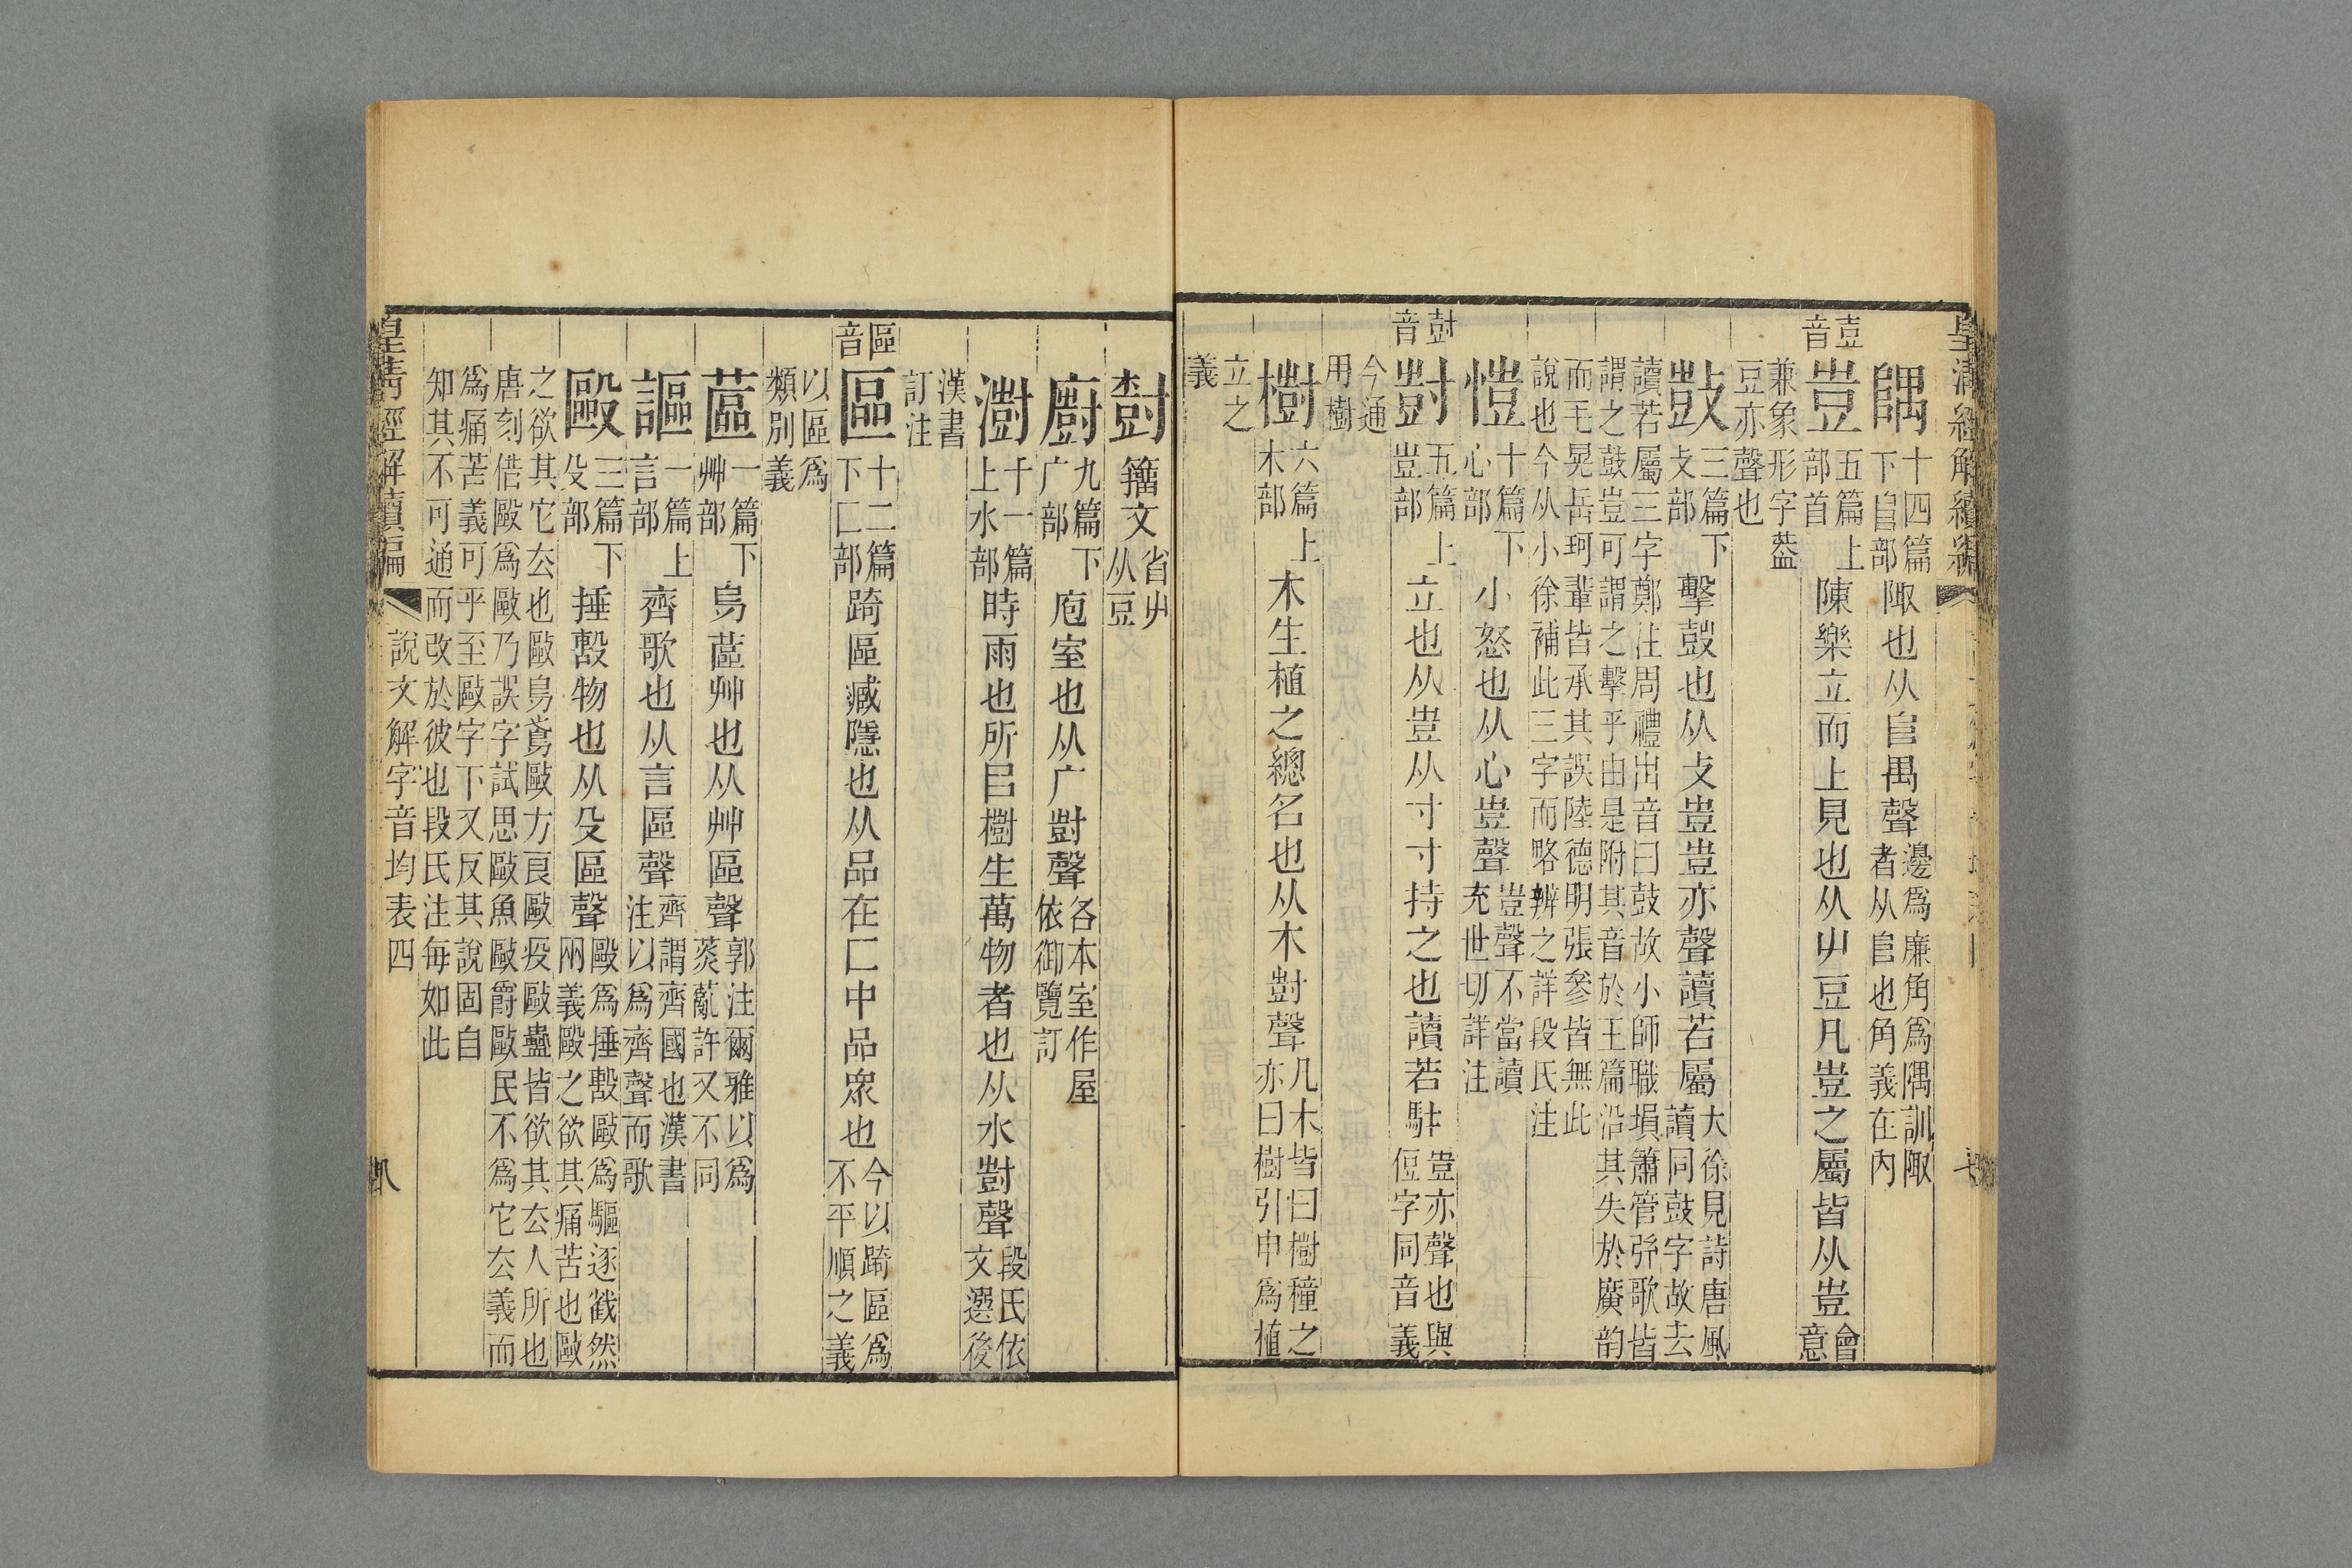 皇清經解續編
隅十四篇下𨸏部陬也从𨸏禺聲邊爲廉角爲隅訓陬者从𨸏也角義在內
壴音壴五篇上部首陳樂立而上見也从屮豆凡壴之屬皆从壴會意
兼象形字葢豆亦聲也
鼔三篇下攴部擊鼓也从攴壴壴亦聲讀若屬大徐見詩唐風讀同鼓字故去
讀若屬三字鄭注周禮出音曰鼓故小師職塤簫管弹歌皆謂之鼓豈可謂之擊乎由是附其音於玉篇沿其失於廣韵
而毛晃岳珂輩皆承其誤陸德明張參皆無此說也今从小徐補此三字而略辨之詳段氏注
㥉十篇下心部小怒也从心壴聲壴聲不當讀充世切詳注
尌音尌五篇上壴部立也从壴从寸寸持之也讀若駐壴亦聲也與侸字同音義
今通用樹
樹六篇上木部木生植之總名也从木尌聲凡木皆曰樹種之亦曰樹引申爲植
立之義
籒文省屮从豆
廚九篇下广部庖室也从广尌聲各本室作屋依御覽訂
澍十一篇上水部時雨也所㠯樹生萬物者也从水尌聲段氏依文選後
漢書訂注
區音區十二篇下匸部踦區臧隱也从品在匸中品眾也今以踦區爲不平順之義
以區爲類別義
蓲一篇下艸部烏蓲艸也从艸區聲郭注爾雅以爲菼薍許又不同
謳一篇上言部齊歌也从言區聲齊謂齊國也漢書注以爲齊聲而歌
毆三篇下殳部捶毄物也从殳區聲毆爲捶毄敺爲驅逐截然兩義毆之欲其痛苦也敺
之欲其它厺也敺鳥鳶敺方良敺疫敺蠱皆欲其厺人所也唐刻借毆爲敺乃誤字試思敺魚敺爵敺民不爲它厺義而
爲痛苦義可乎至敺字下又反其說固自知其不可通而改於彼也段氏注每如此
皇清經解續編 說文解字音均表四 八